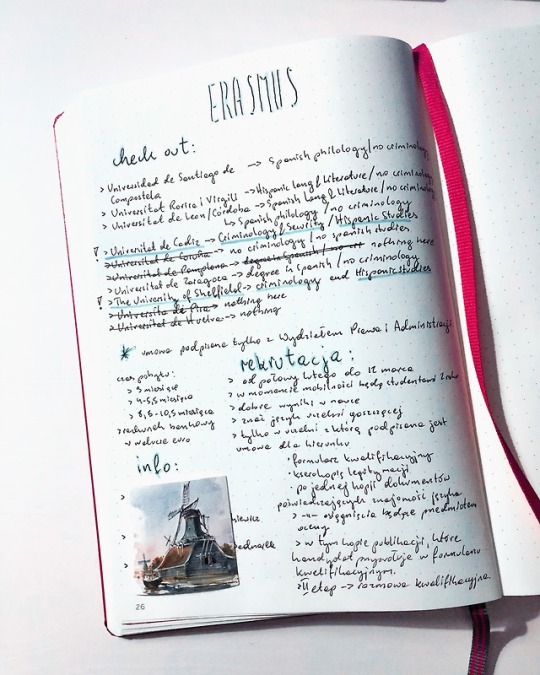 ERASMUS
check out:
> Universidad de Santiago de Compostela -> Spanish philology/no criminology
> Universitat Rovira i Virgili -> Hispanic Lang & Literature / no criminology
> Universitat de Leon/Cordoba -> Spanish Lang & Literature / no criminology
↳ Spanish philology / no criminology
! > Universitat de Cadiz -> Criminology & Security / Hispanic Studies
> Universitat de Coruña -> no criminology / no spanish studies
> Universitat de Pamplona -> nothing here
> Universitat de Zaragoza -> degree in Spanish / no criminology
! > The University of Sheffield -> criminology and Hispanic studies
> Universita de Pisa -> nothing here
> Universitat de Huelva -> nothing
* umowa podpisana tylko z Wydziałem Prawa i Administracji
czas pobytu:
> 3 miesiące
> 4-5,5 miesiąca
> 5,5-10,5 miesiąca
> rachunek bankowy
w walucie euro
rekrutacja:
> od połowy lutego do 12 marca
> w momencie mobilności będę studentem 2 roku
> dobre wyniki w nauce
> znać język uczelni goszczącej
> tylko w uczelni z którą podpisana jest
umowa dla kierunku
• formularz kwalifikacyjny
• kserokopię legitymacji
• po jednej kopii dokumentów
poświadczających znajomość języka
> -"- osiągnięcia będące przedmiotem
oceny
> w tym kopie publikacji, które
kandydat przywołuje w formularzu
kwalifikacyjnym.
> II etap -> rozmowa kwalifikacyjna
info:
>
>
>
26